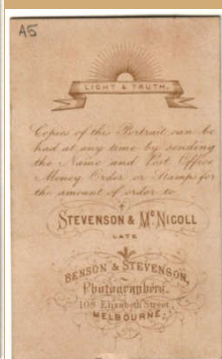 A5
LIGHT & TRUTH.
Copies of this Portrait can be
had at any time by sending
the Name and Post Office
Money Order or Stamps for
the amount of order to
STEVENSON & McNICOLL
LATE
BENSON & STEVENSON,
Photographers.
108 Elizabeth Street
MELBOURNE.